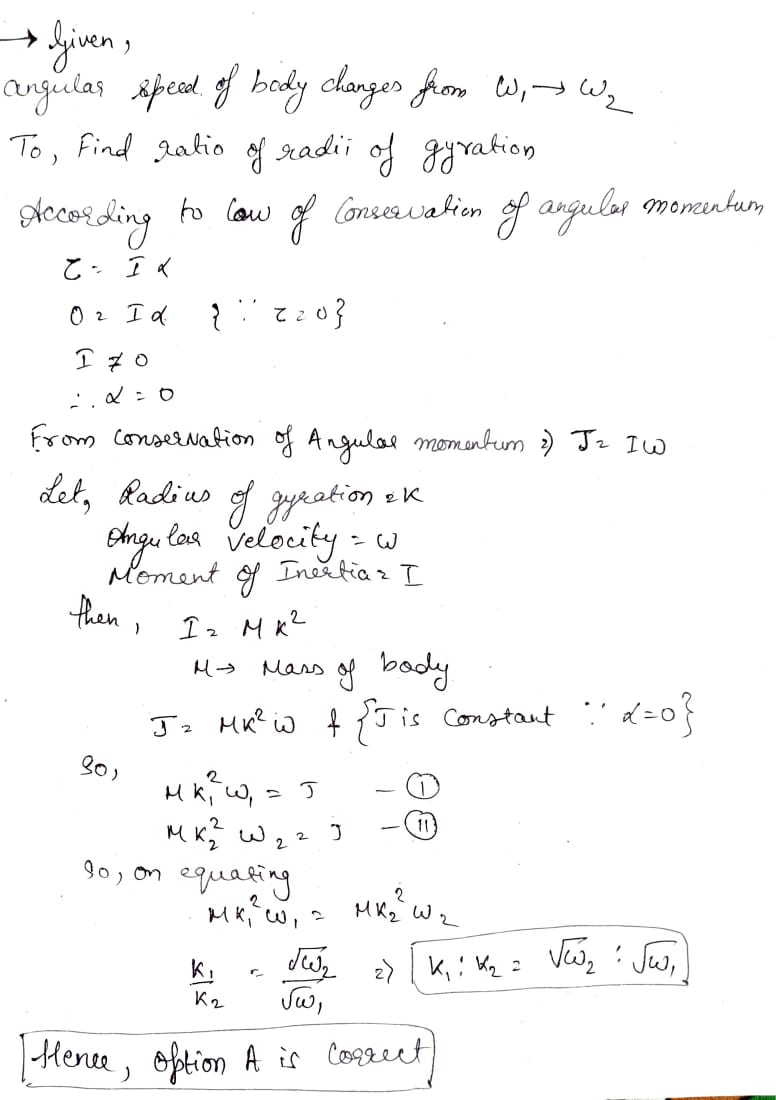 → Given,
angular speed of body changes from ω₁ → ω₂
To, Find ratio of radii of gyration
According to law of Conservation of angular momentum
τ = I α
0 = I α { ∵ τ = 0}
I ≠ 0
∴ α = 0
From conservation of Angular momentum ⇒ J = I ω
Let, Radius of gyration = K
Angular velocity = ω
Moment of Inertia = I
then, I = M K²
M → Mass of body
J = MK² ω & {J is constant ∵ α = 0}
So,
M K₁² ω₁ = J — (I)
M K₂² ω₂ = J — (II)
So, on equating
MK₁² ω₁ = MK₂² ω₂
K₁/K₂ = √ω₂/√ω₁ ⇒ K₁ : K₂ = √ω₂ : √ω₁
Hence, option A is correct